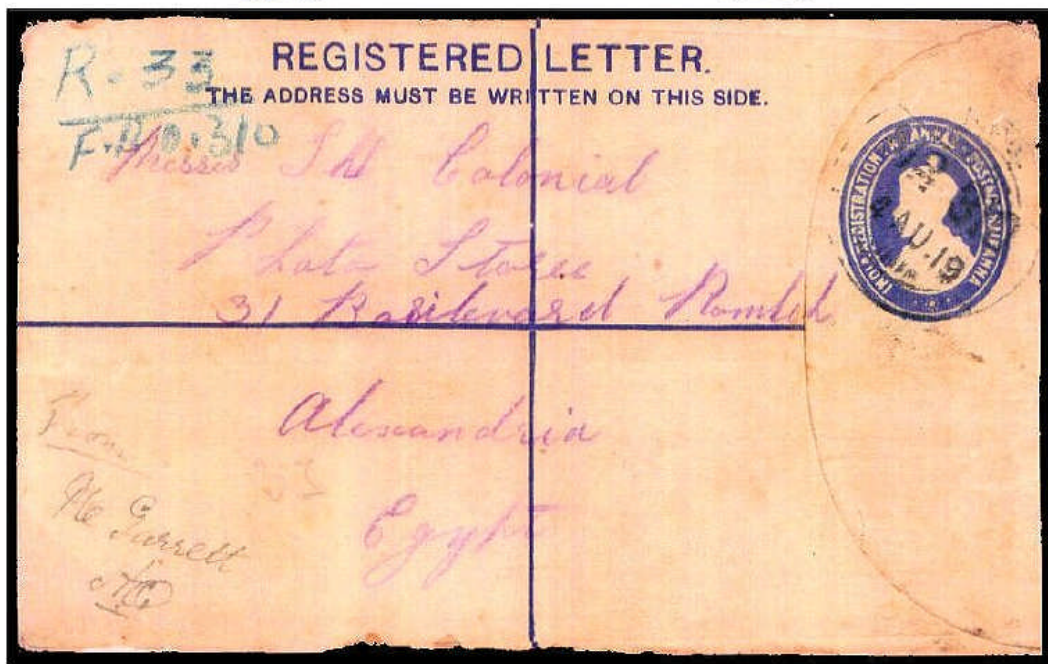 REGISTERED LETTER.
THE ADDRESS MUST BE WRITTEN ON THIS SIDE.
R. 33
F.P.O. 310
Messrs The Colonial
Photo Stores
31 Boulevard Ramleh
Alexandria
Egypt
33
From
Garrett
INDIA REGISTRATION TWO ANNAS
POSTAGE ANNA
AU. 19